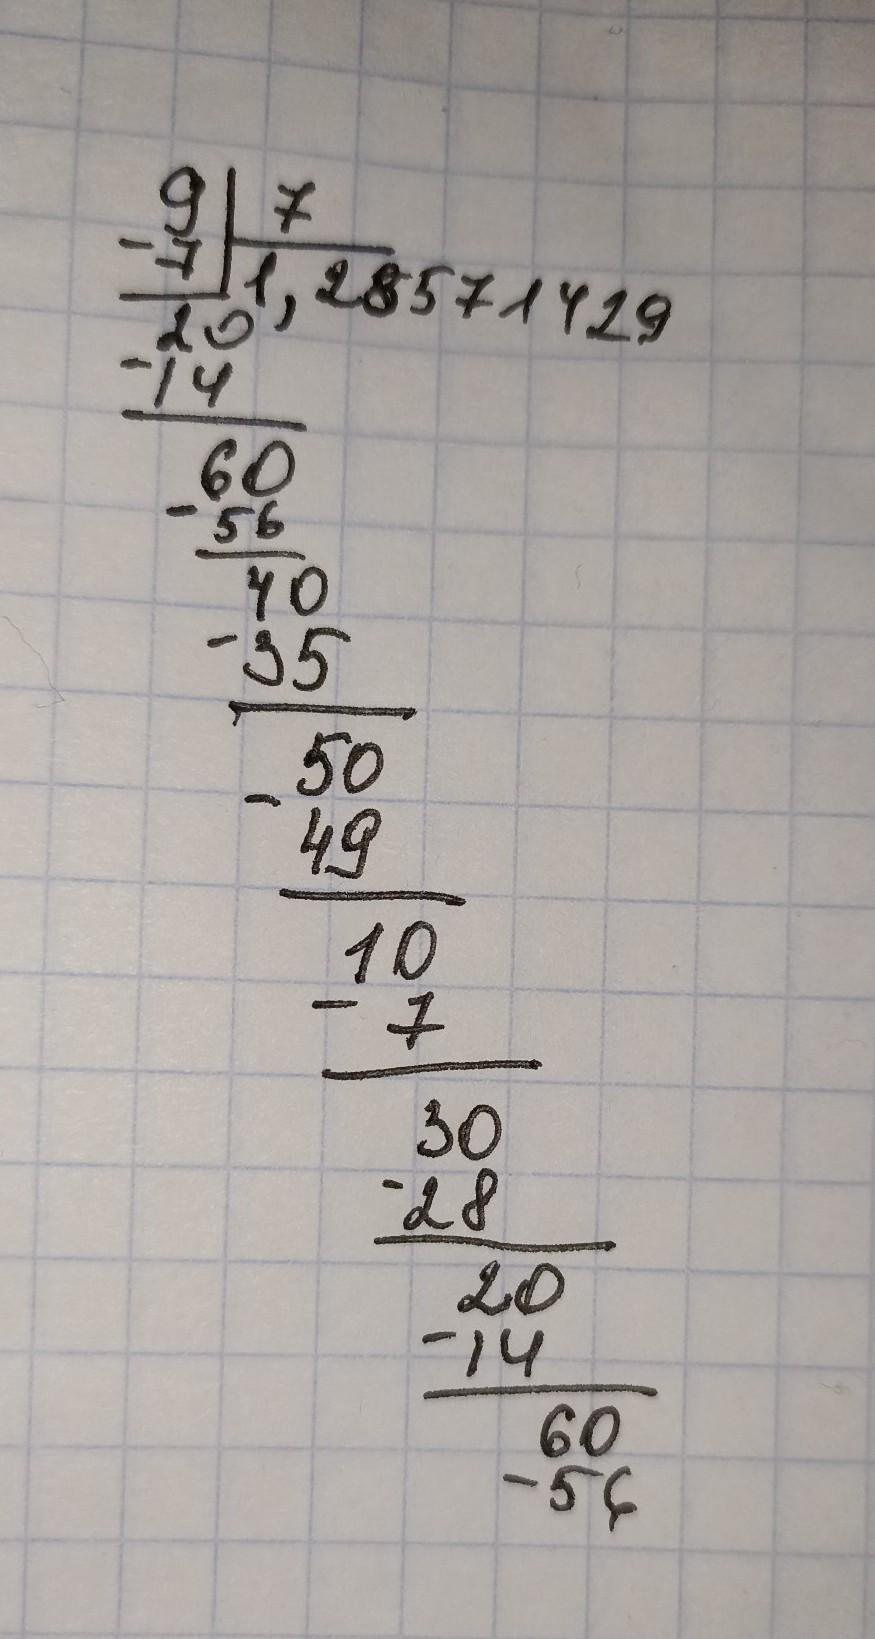 9 7
-7 1,28571429
20
-14
60
-56
40
-35
50
-
49
10
- 7
30
-28
20
-14
60
-56